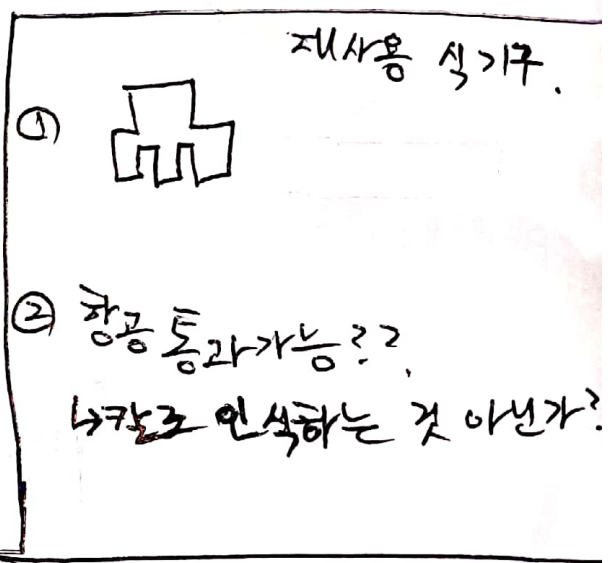 재사용 식기구.
①
② 항공 통과가능??
↳칼로 인식하는 것 아닌가?